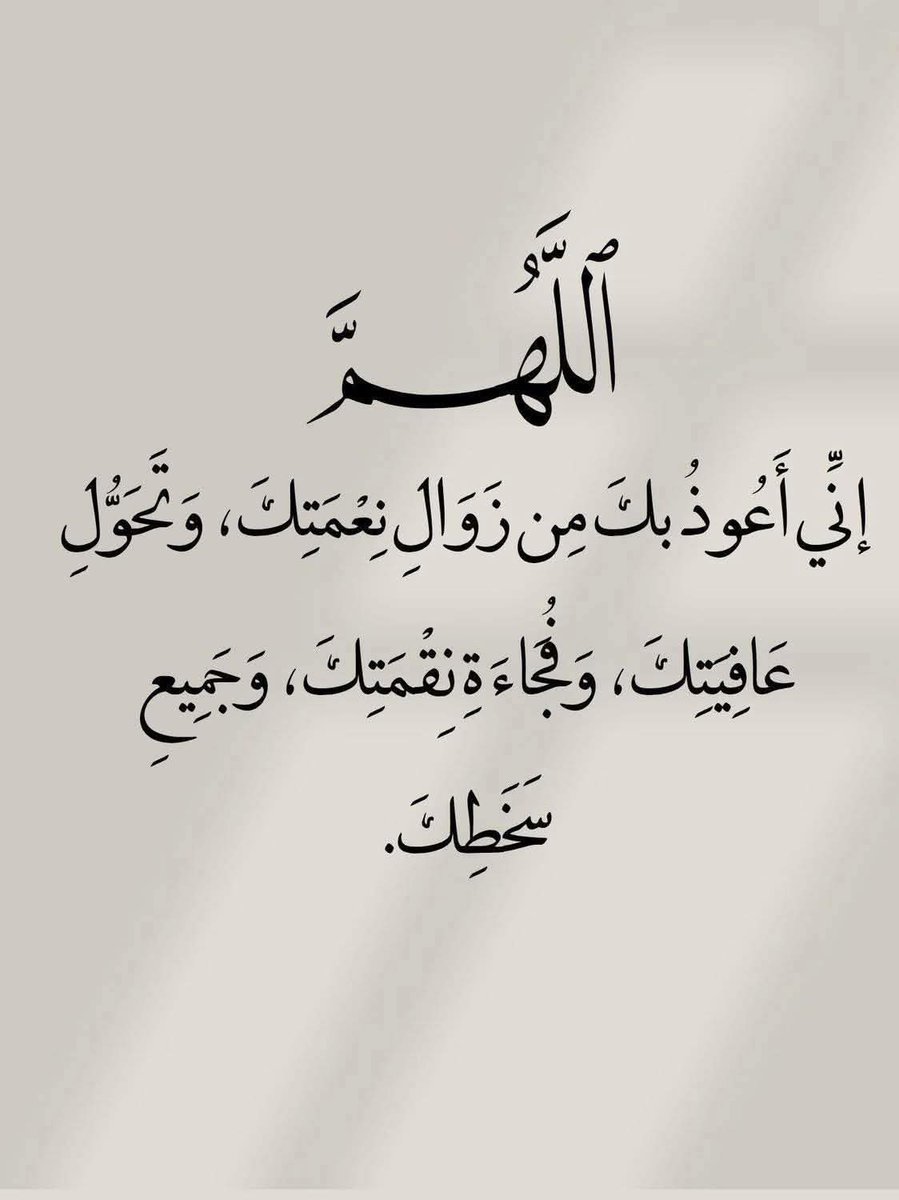 ٱللَّهُمَّ
إنِّي أَعُوذُ بكَ مِن زَوَالِ نِعْمَتِكَ، وَتَحَوُّلِ
عَافِيَتِكَ، وَفُجَاءَةِ نِقْمَتِكَ، وَجَمِيعِ
سَخَطِكَ.